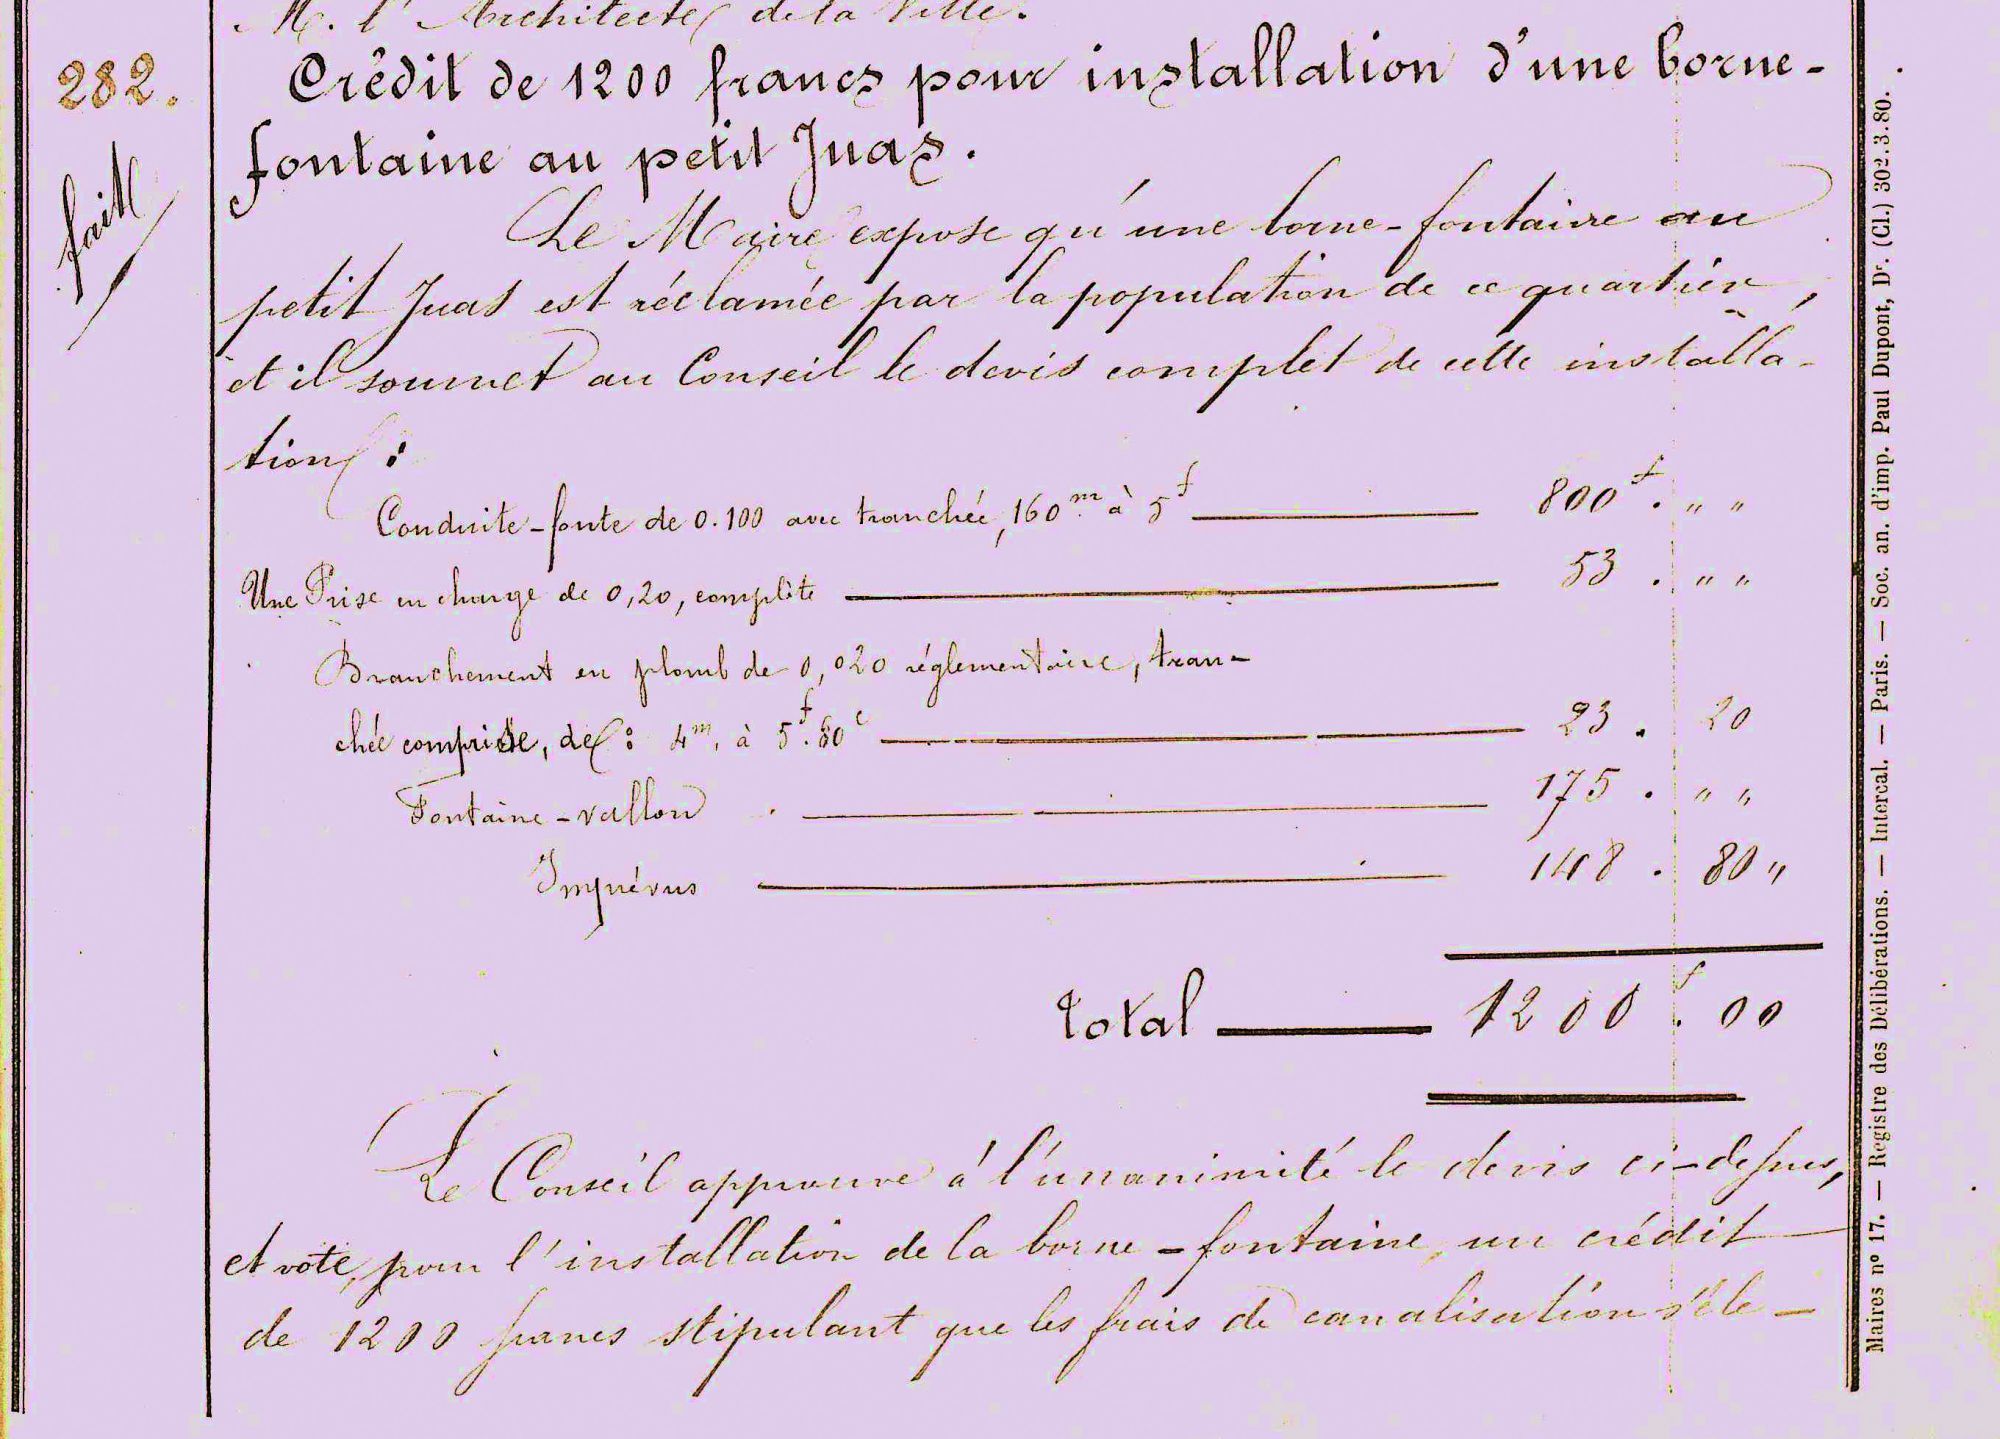 M. l'Architecte de la Ville.
282.
Crédit de 1200 francs pour installation d'une borne-
fontaine au petit Juas.
fait
Le Maire expose qu'une borne-fontaine au
petit Juas est réclamée par la population de ce quartier,
et il soumet au Conseil le devis complet de cette installa-
tion :
Conduite-fonte de 0.100 avec tranchée, 160m à 5f — 800f. " "
Une Prise en charge de 0,20, complète — 53 . " "
Branchement en plomb de 0,020 réglementaire, tran-
chée comprise, de : 4m. à 5f.80c — 23 . 20
Fontaine-vallon — 175 . " "
Imprévus — 148 . 80 "
Total — 1200f.00
Le Conseil approuve à l'unanimité le devis ci-dessus,
et vote, pour l'installation de la borne-fontaine, un crédit
de 1200 francs stipulant que les frais de canalisation s'éle-
Maires nº 17. — Registre des Délibérations. — Intercal. — Paris. — Soc. an. d'imp. Paul Dupont, Dr. (Cl.) 302.3.80.